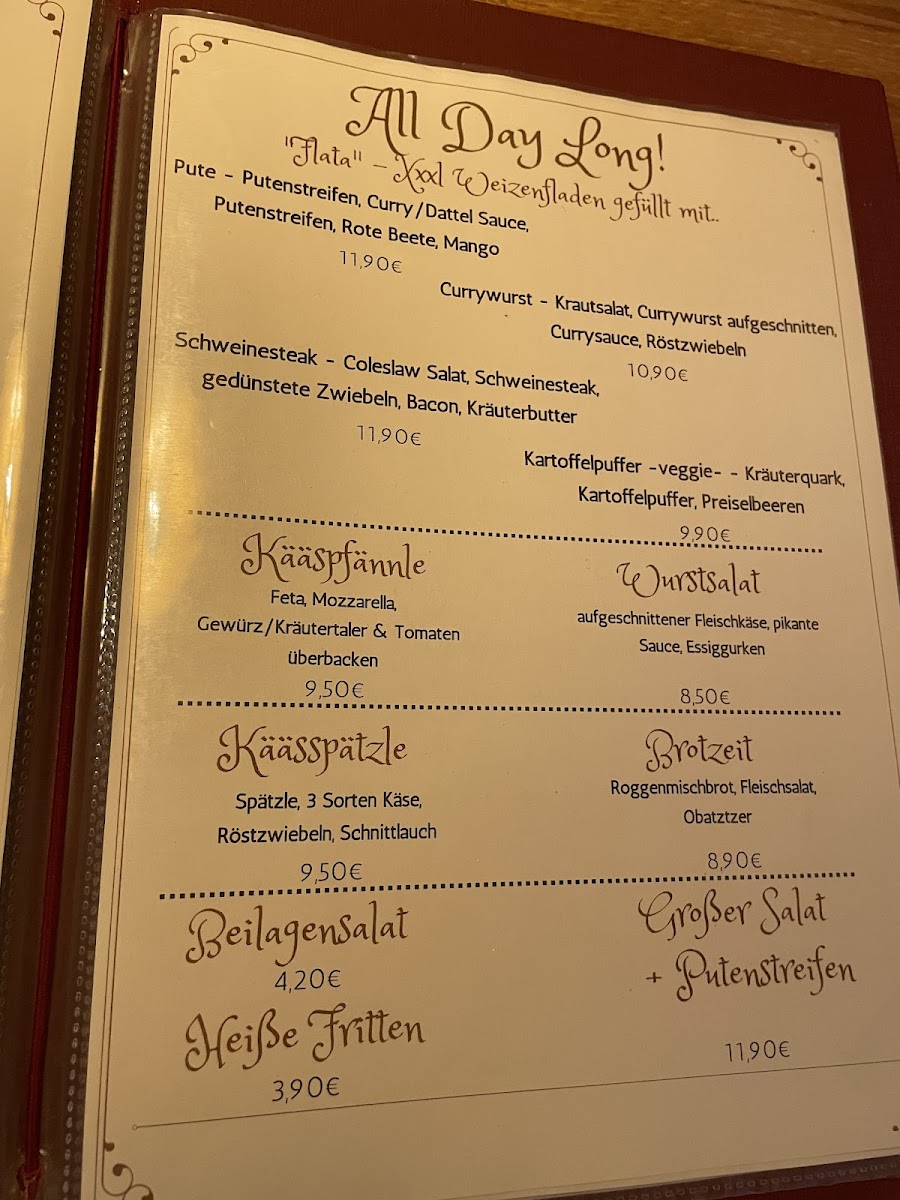 All Day Long!
"Flata" - Xxxl Weizenfladen gefüllt mit..
Pute - Putenstreifen, Curry/Dattel Sauce,
Putenstreifen, Rote Beete, Mango
11,90€
Currywurst - Krautsalat, Currywurst aufgeschnitten,
Currysauce, Röstzwiebeln
10,90€
Schweinesteak - Coleslaw Salat, Schweinesteak,
gedünstete Zwiebeln, Bacon, Kräuterbutter
11,90€
Kartoffelpuffer -veggie- - Kräuterquark,
Kartoffelpuffer, Preiselbeeren
9,90€
Kääspfännle
Feta, Mozzarella,
Gewürz/Kräutertaler & Tomaten
überbacken
9,50€
Wurstsalat
aufgeschnittener Fleischkäse, pikante
Sauce, Essiggurken
8,50€
Käässpätzle
Spätzle, 3 Sorten Käse,
Röstzwiebeln, Schnittlauch
9,50€
Brotzeit
Roggenmischbrot, Fleischsalat,
Obatztzer
8,90€
Beilagensalat
4,20€
Heiße Fritten
3,90€
Großer Salat
+ Putenstreifen
11,90€